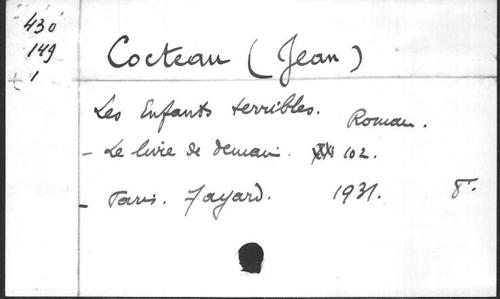 430
149
+ 1
Cocteau (Jean)
Les Enfants terribles. Roman.
- Le livre de demain. 102.
- Paris. Fayard. 1931. 8°.